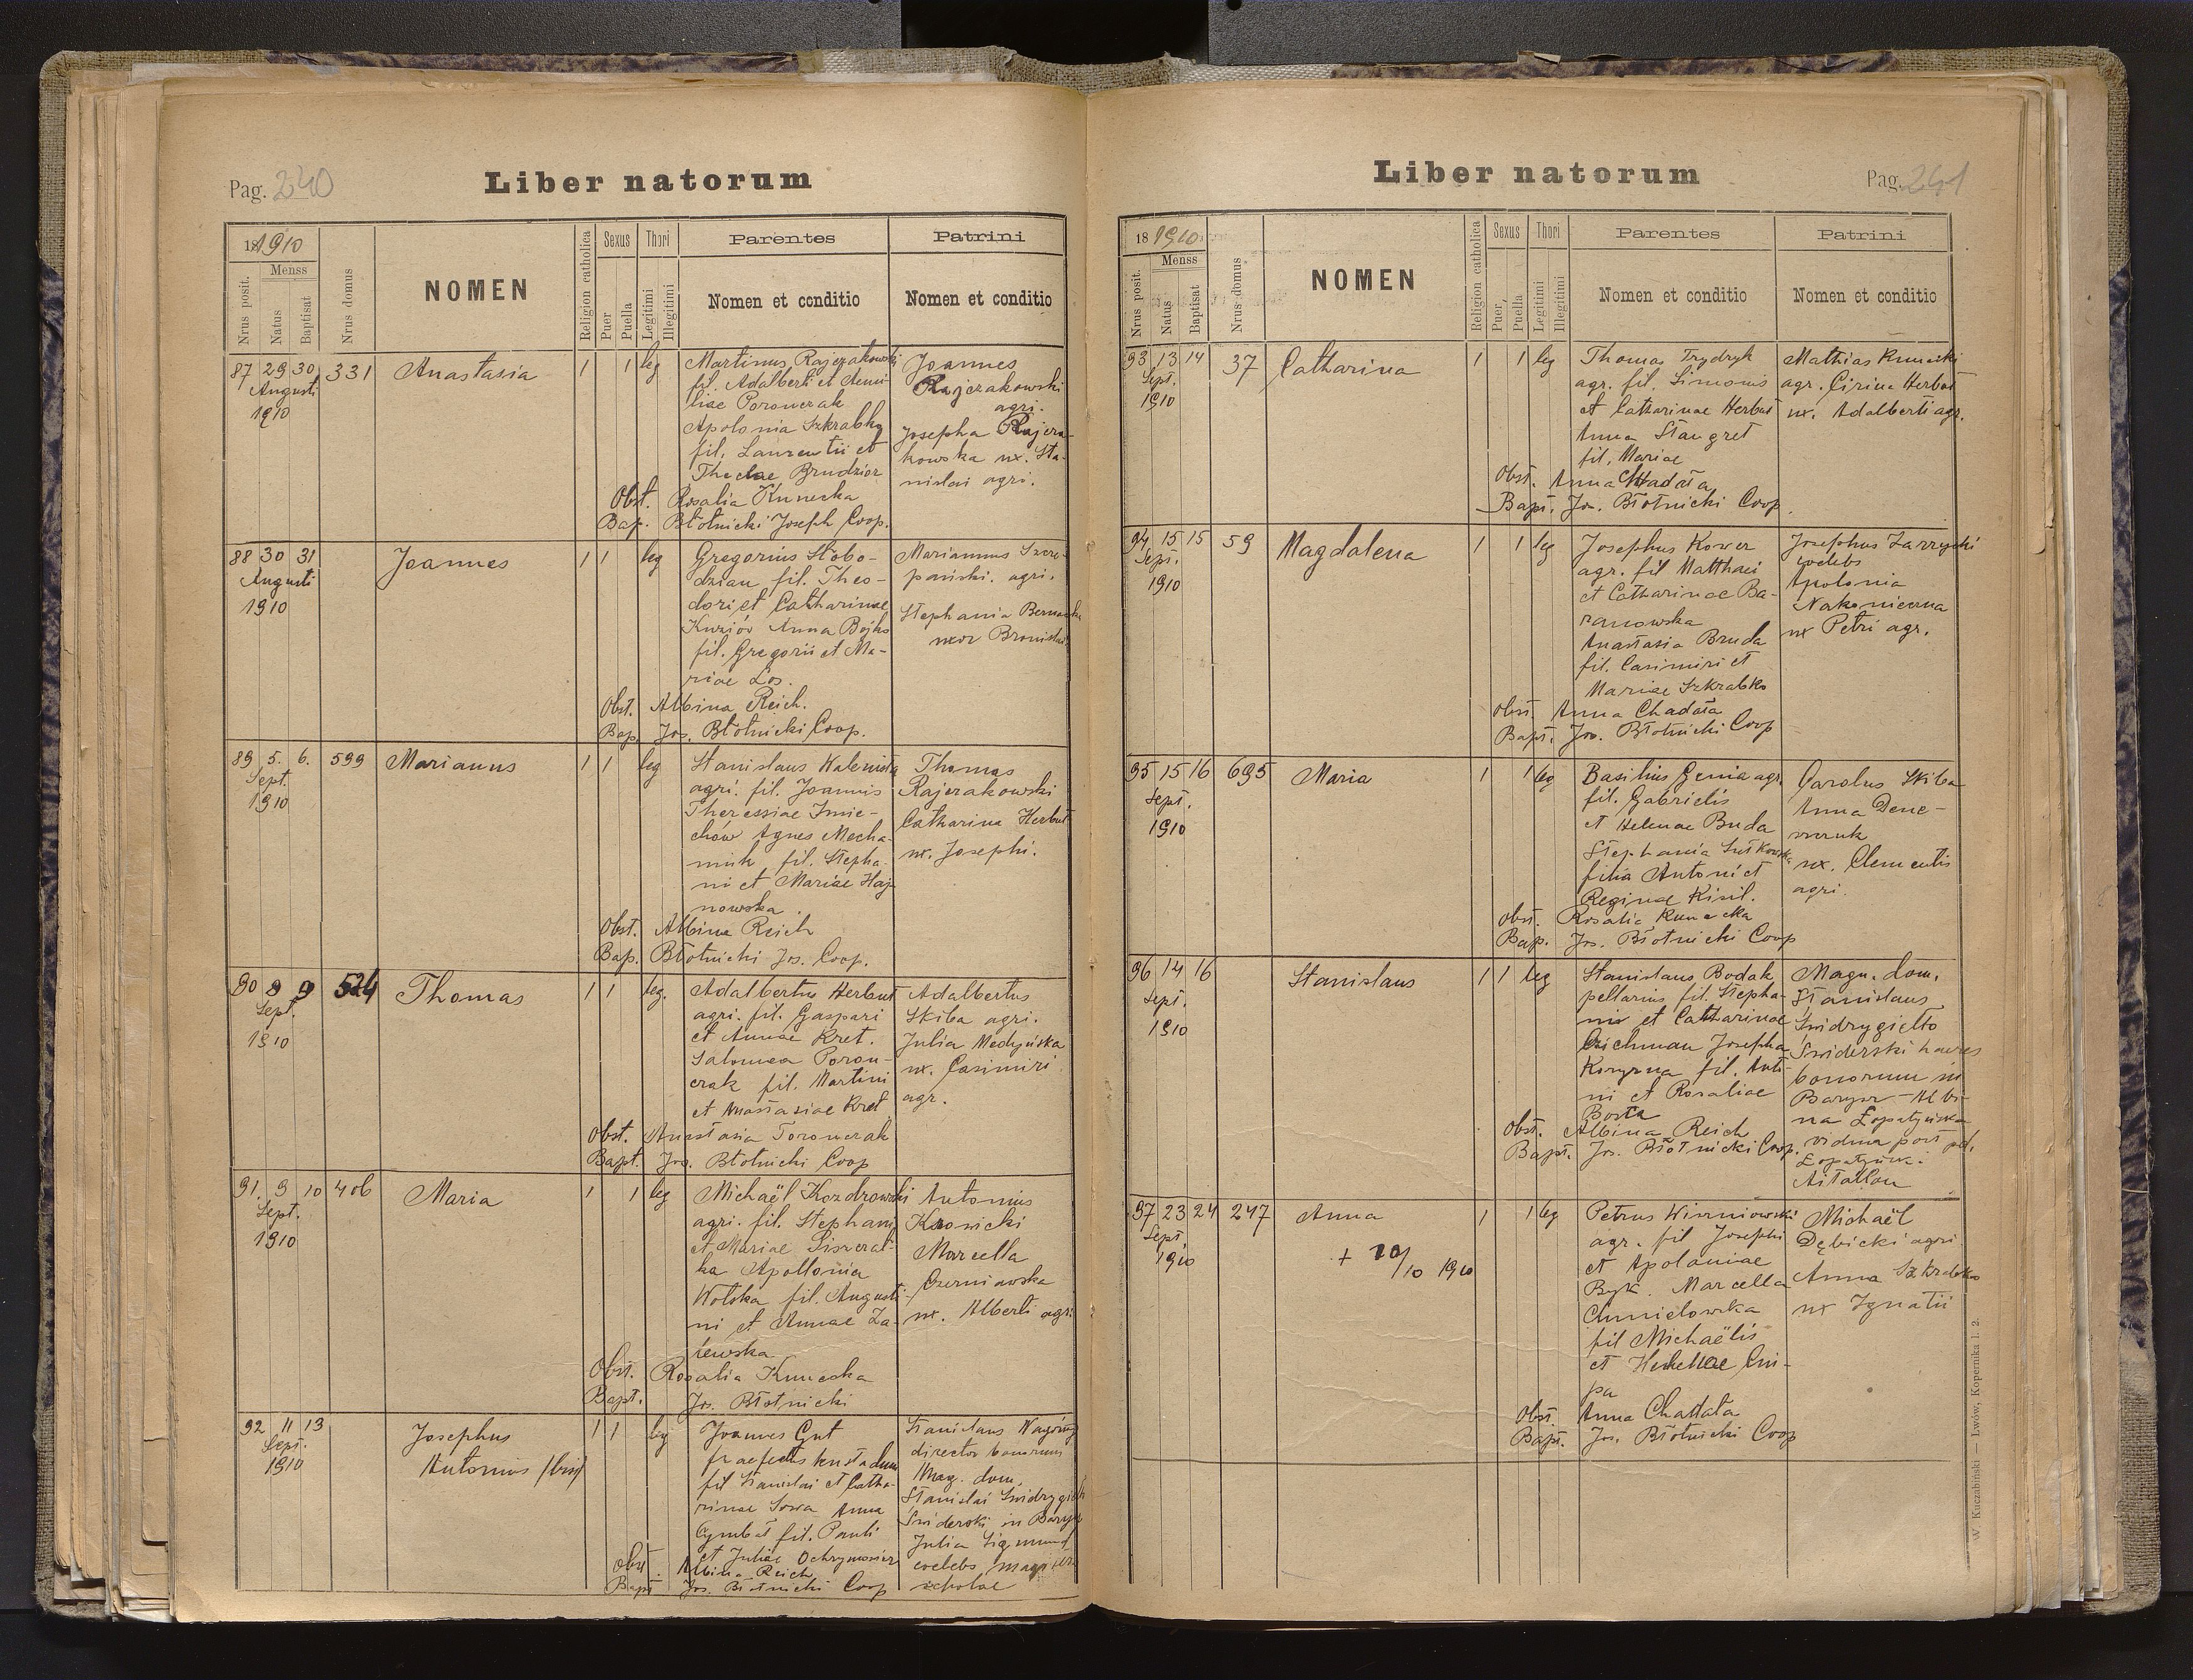 Pag. 240
Liber natorum
1910
Menss
Nrus posit.
Natus
Baptisat
Nrus domus
NOMEN
Religion catholica
Sexus
Puer
Puella
Thori
Legitimi
Illegitimi
Parentes
Nomen et conditio
Patrini
Nomen et conditio
87 29 30 331 Anastasia 1 1 leg
Augusti
1910
Martinus Rajzakowski
fil. Adalberti et
Porowczak
Apolonia Szkrabko
fil. Laurentii et
Theclae Brudzior
Joannes
Rajczakowski
agri.
Josepha Rajcza-
kowska ux. Sta-
nislai agri.
Obst. Rosalia Kunecka
Bap. Błotnicki Joseph Coop.
88 30 31 Joannes 1 1 leg
Augusti
1910
Gregorius Słobo-
dzian fil. Theo-
dori et Catharinae
Kuziów Anna Bojko
fil. Gregorii et Ma-
riae Los.
Mariannus Szcze-
pański. agri.
Stephania
uxor Bronislai
Obst. Albina Reich.
Bap. Jos. Błotnicki Coop.
89 5. 6. 599 Marianus 1 1 leg
Sept.
1910
Stanislaus
agri. fil. Joannis
Theressiae Smie-
chów Agnes Mecha-
niuk fil. Stepha-
ni et Mariae Haj-
nowska
Thomas
Rajczakowski
Catharina Herbut
ux. Josephi.
Obst. Albina Reich
Bap. Błotnicki Jos. Coop.
90 8 9 524 Thomas 1 1 leg.
Sept.
1910
Adalbertus Herbut
agri. fil. Gaspari
et Annae Kret.
Salomea Porow-
czak fil. Martini
et Anastasiae Kret
Adalbertus
Skiba agri.
Julia Medyńska
ux. Casimiri
agr.
Obst. Anastasia Porowczak
Bapt. Jos. Błotnicki Coop
91. 9 10 406 Maria 1 1 leg
Sept.
1910
Michaël Kozdrowski
agri. fil. Stephani
et Mariae
ka Apollonia
Wolska fil. Augusti-
ni et Annae Za-
iewska
Antonius
Krosnicki
Marcella
Czerniawska
ux. Alberti agri
Obst. Rosalia Kunecka
Bapt. Jos. Błotnicki
92 11 13 Josephus 1 1 leg
Sept.
1910
Antonius
Joannes Gut
praefectus
fil Stanislai et Catha-
rinae Sowa Anna
Cymbał fil. Pauli
et Juliae
Stanislaus
director bonorum
Mag. dom.
Stanislai
Świderski in Barysz
Julia Sigmund
coelebs
scholae
Obst. Albina Reich
Bapt Jos. Błotnicki Coop
Liber natorum
Pag. 241
18 1910
Menss
Nrus posit.
Natus
Baptisat
Nrus domus
NOMEN
Religion catholica
Sexus
Puer,
Puella
Thori
Legitimi
Illegitimi
Parentes
Nomen et conditio
Patrini
Nomen et conditio
93 13 14 37 Catharina 1 1 leg
Sept.
1910
Thomas Trydryk
agr. fil. Simonis
et Catharinae Herbut
Anna Stangret
fil, Mariae
Mathias Kunecki
agr. Cirina Herbut
ux. Adalberti agr.
Obst. Anna Chadała
Bapt. Jos. Błotnicki Coop.
94 15 15 59 Magdalena 1 1 leg
Sept.
1910
Josephus Kower
agr. fil Matthaei
et Catharinae Ba-
ranowska
Anastasia Bruda
fil. Casimiri et
Mariae Szkrabko
Josephus Zarzycki
coelebs
Apolonia
Nakonieczna
ux Petri agr.
Obst. Anna Chadała
Bapt. Jos. Błotnicki Coop
95 15 16 695 Maria 1 1 leg
Sept.
1910
Basilius Genia agr.
fil. Gabrielis
et Helenae Buda
Stephania Sutkowska
filia Antoni et
Reginae Kisil.
Carolus Skiba
Anna
ux. Clementis
agri.
Obst. Rosalia Kunecka
Bap. Jos. Błotnicki Coop
96 14 16 Stanislaus 1 1 leg
Sept.
1910
Stanislaus Bodak
pellarius fil. Stepha-
nis et Catharinae
Eichman Josepha
fil. Anto-
ni et Rosaliae
Magn. dom.
Stanislaus
Świdrygiełło
Świderski haeres
bonorum in
Barysz - Albi-
na Łopatyńska
vidua post
Obst. Albina Reich
Bapt. Jos. Błotnicki Coop.
97 23 24 247 Anna 1 1 leg
Sept
1910
+ 20/10 1910
Petrus Wiszniowski
agr. fil Josephi
et Apoloniae
Byk. Marcella
Chmielowska
fil Michaëlis
et Helenae Cni-
pa
Michaël
Dębicki agri
Anna Szkrabko
ux Ignatii
Obst. Anna Chadała
Bapt. Jos. Błotnicki Coop
W. Kuczabiński — Lwów, Kopernika l. 2.